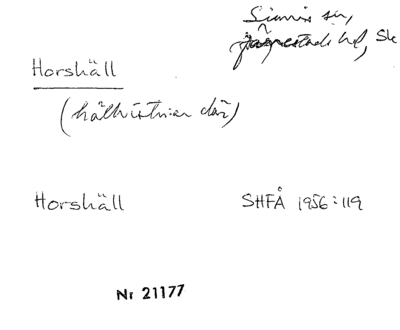 Simris sn,
Järrestads hd, Sk
Horshäll
(hällristningar där)
Horshäll SHFÅ 1956:119
Nr 21177